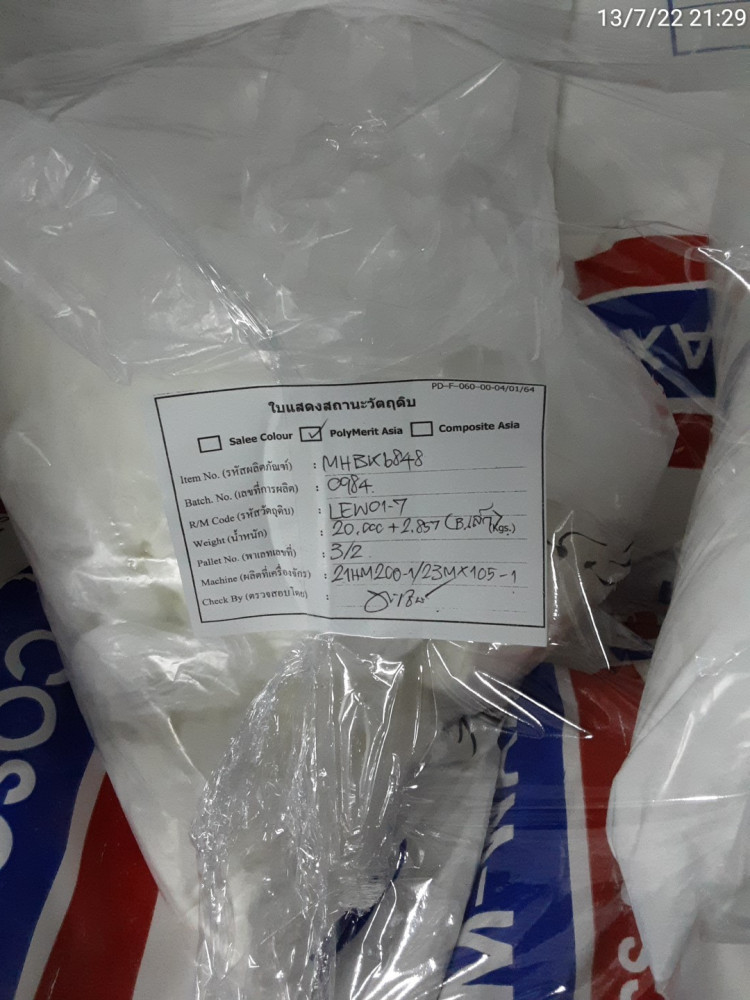 13/7/22 21:29
PD-F-060-00-04/01/64
ใบแสดงสถานะวัตถุดิบ
Salee Colour PolyMerit Asia Composite Asia
Item No. (รหัสผลิตภัณฑ์) : MHBK6848
Batch. No. (เลขที่การผลิต) : 0984
R/M Code (รหัสวัตถุดิบ) : LEW01-7
Weight (น้ำหนัก) : 20,000 + 2.857 (Kgs.)
Pallet No. (พาเลทเลขที่) : 3/2
Machine (ผลิตที่เครื่องจักร) : 21HM200-1/23MX105-1
Check By (ตรวจสอบโดย) :
COS